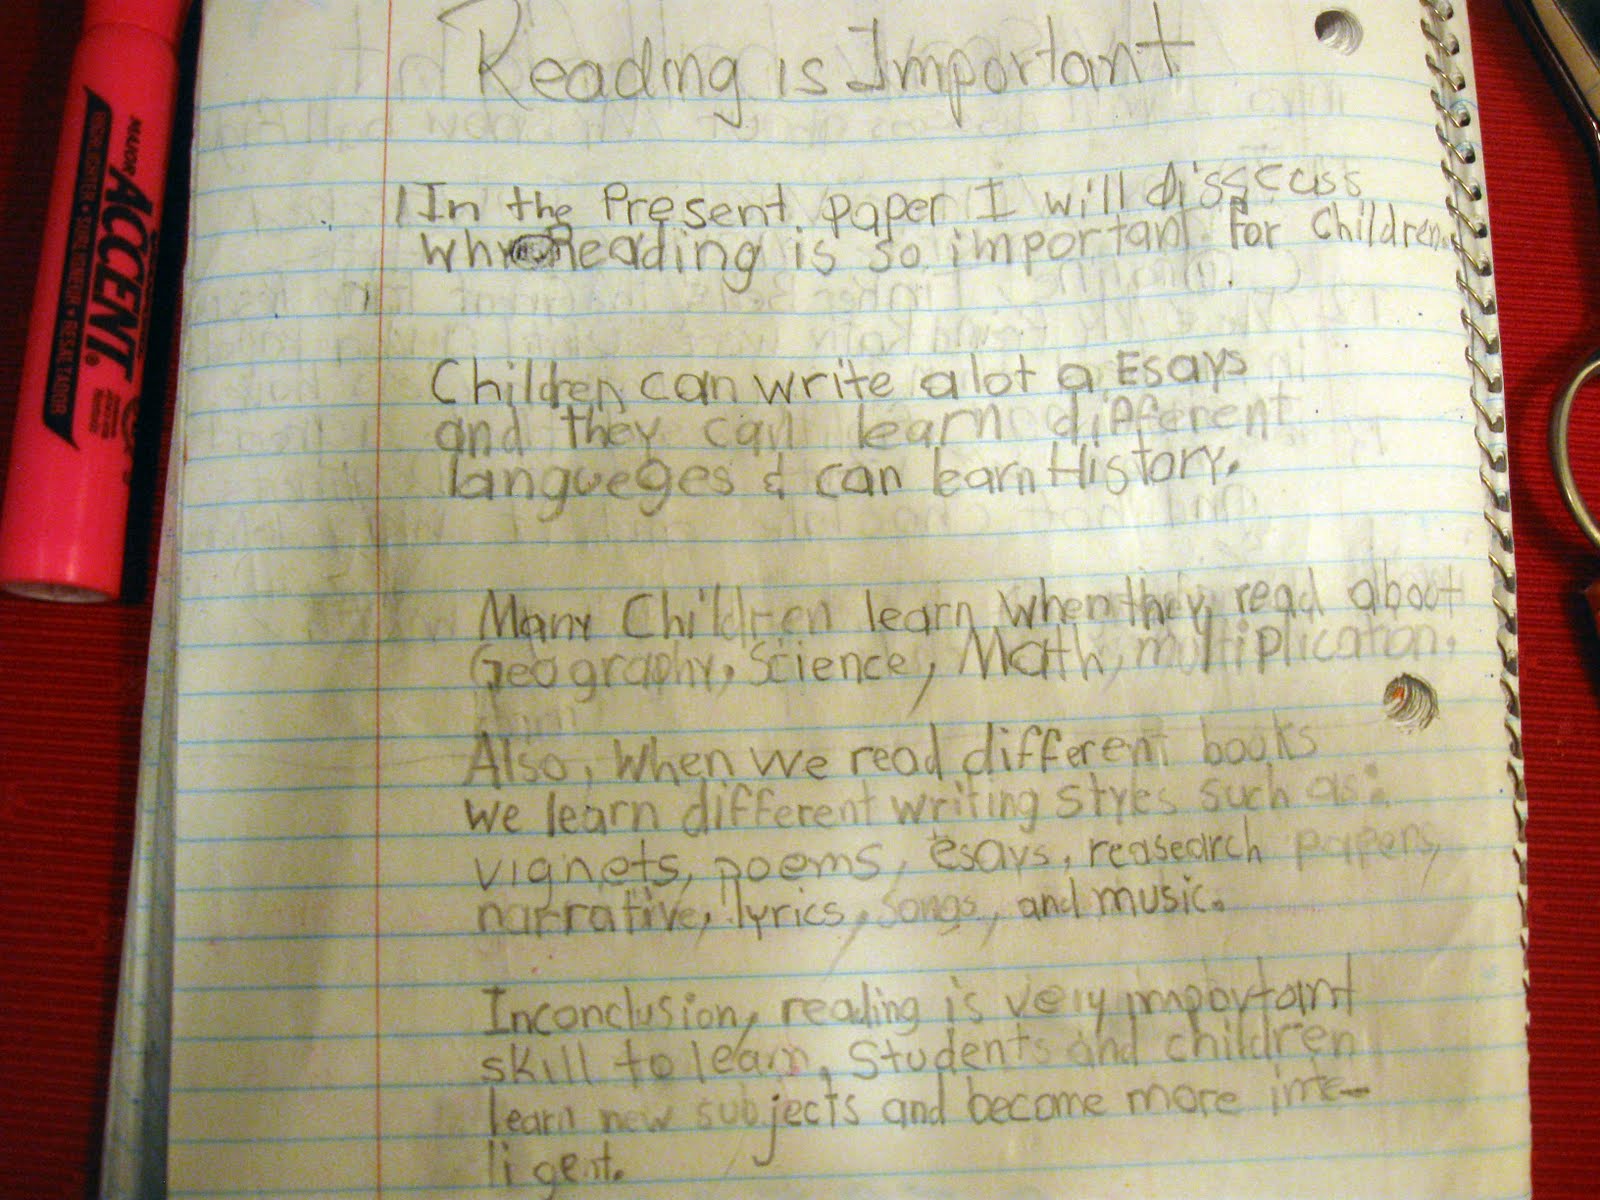 Reading is Important
In the Present paper I will disscuss
why Reading is so important for Children.
Children can write alot a Esays
and they can learn different
langueges & can learn History.
Many Children learn when they read about
Geography, Science, Math, multiplication.
Also, when we read different books
we learn different writing styles such as:
vignets, poems, esays, reasearch papers,
narrative, lyrics, songs, and music.
Inconclusion, reading is very important
skill to learn, Students and children
learn new subjects and become more inte-
ligent.
MAJOR ACCENT®